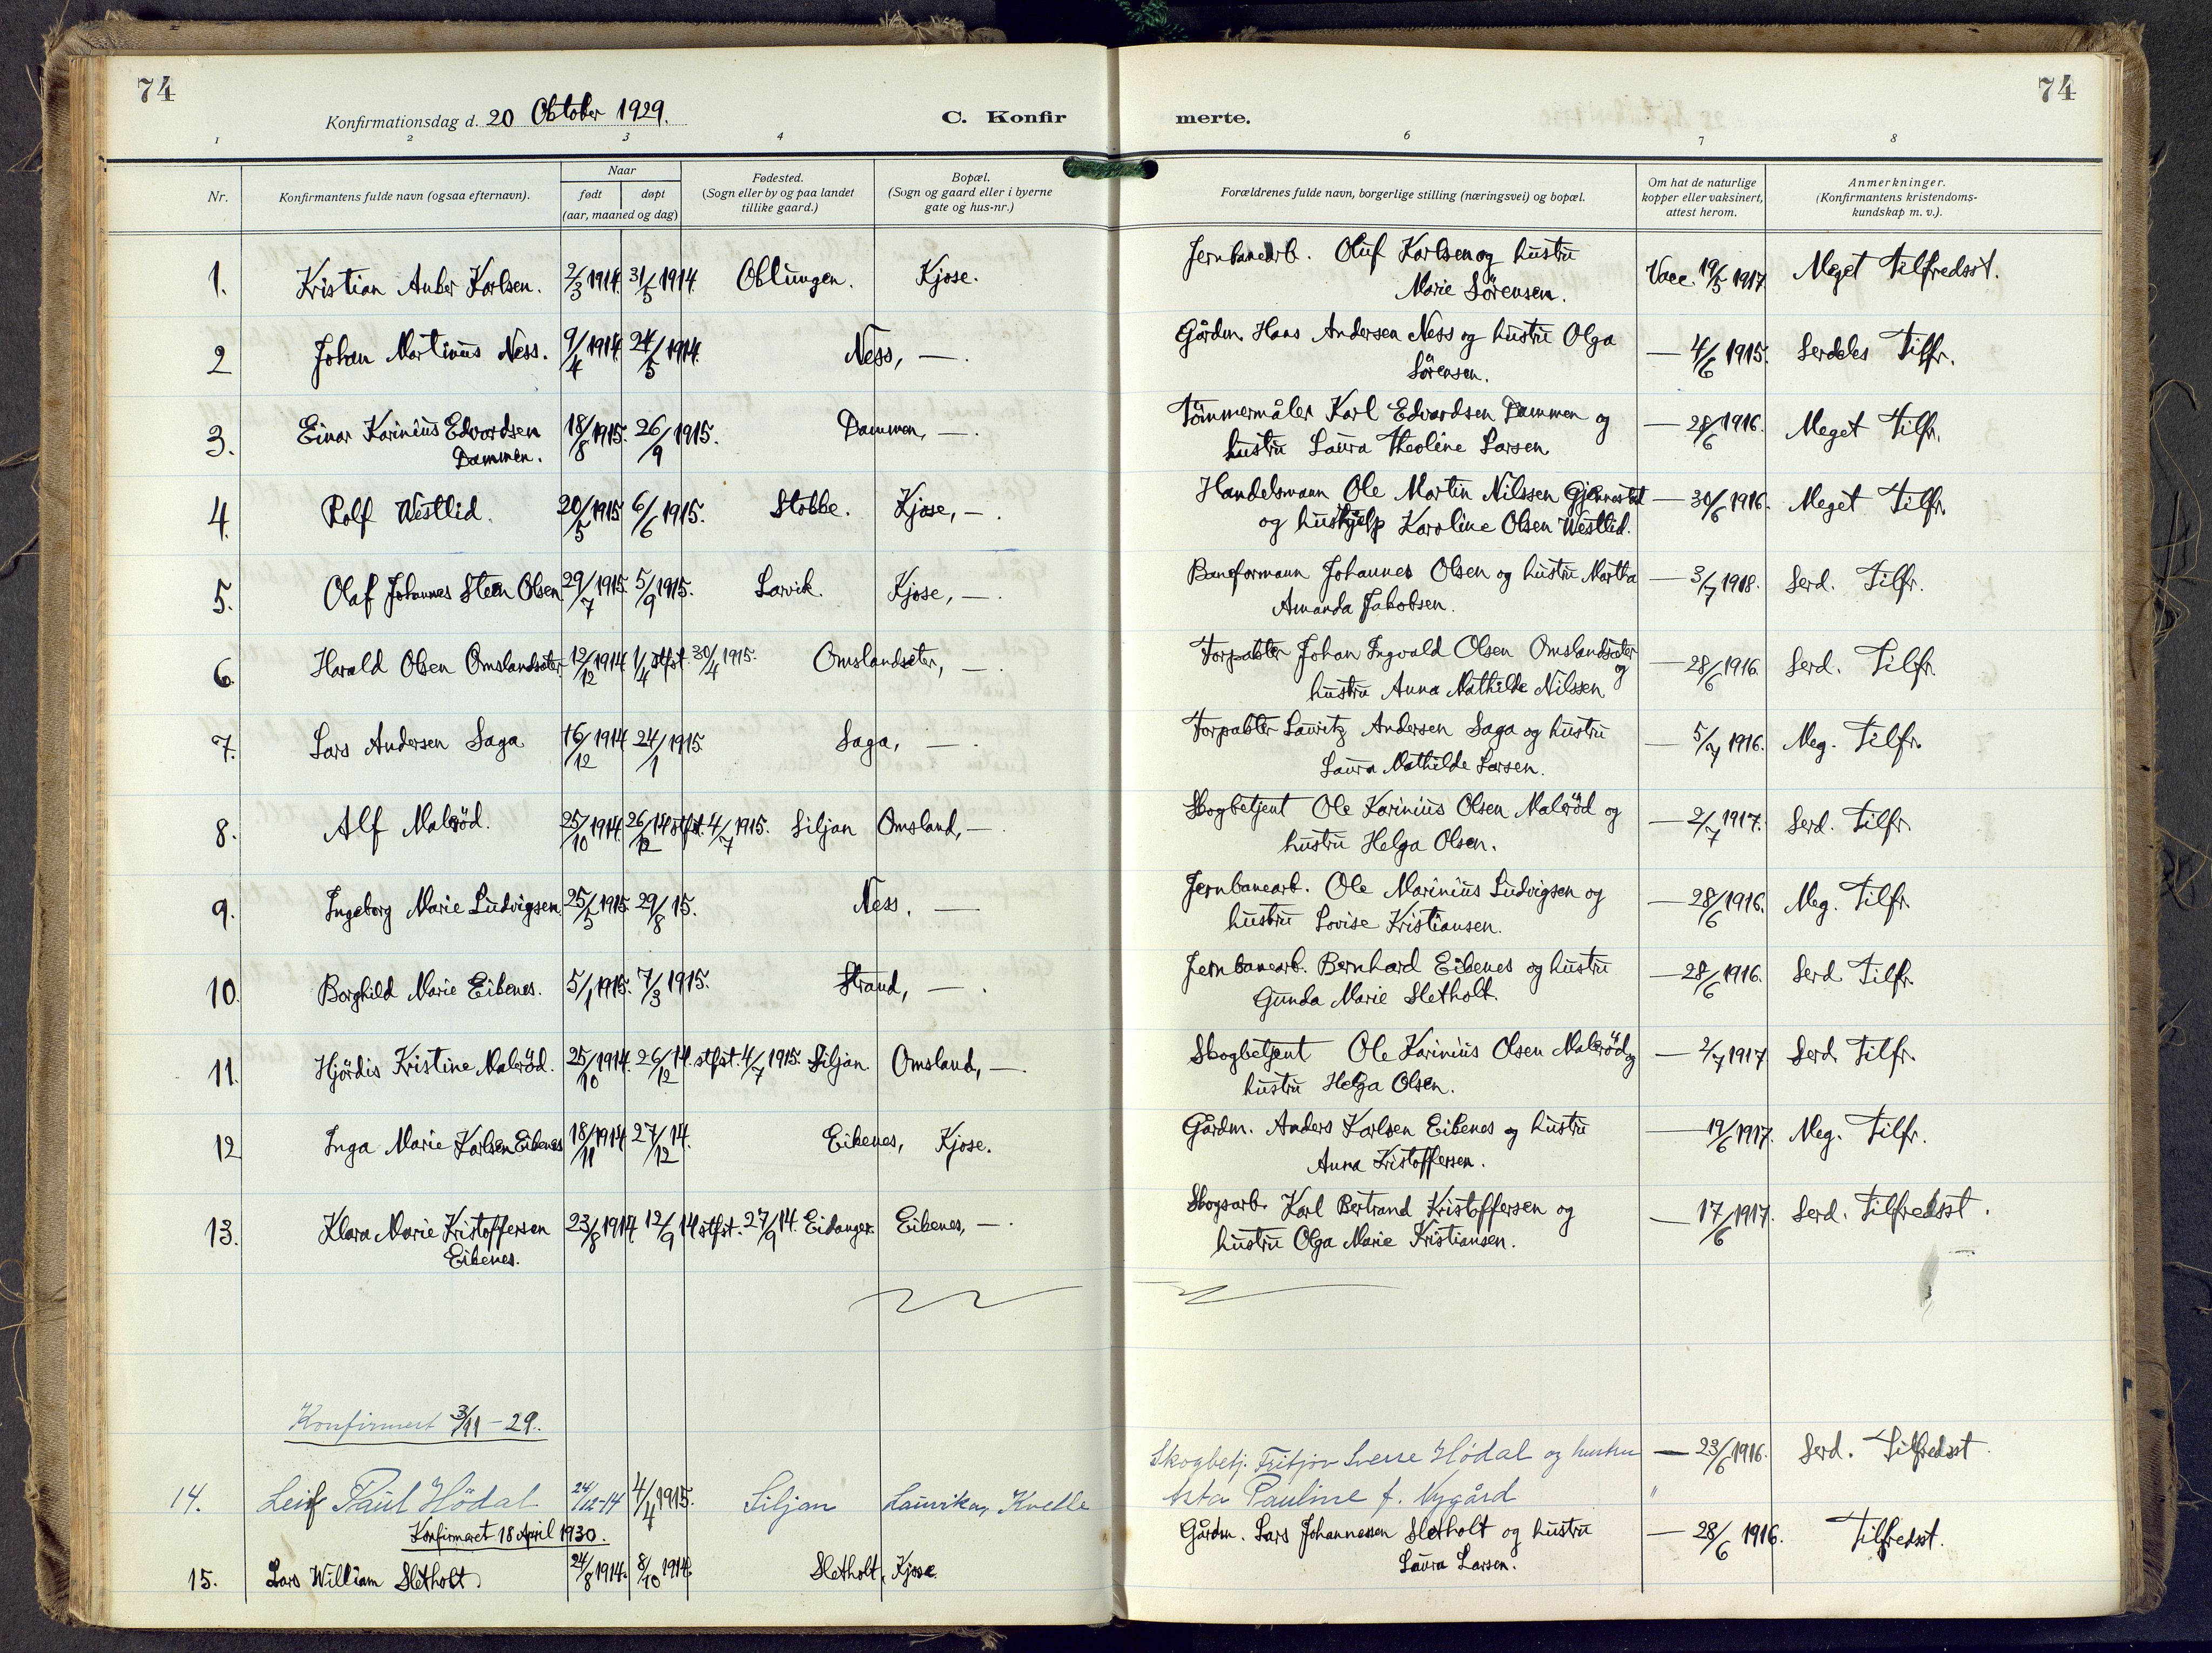 74
74
Konfirmationsdag d. 20 Oktober 1929.
C. Konfir
merte.
1 2 3 4 6 7 8
Nr.
Konfirmantens fulde navn (ogsaa efternavn).
Naar
født døpt
(aar, maaned og dag)
Fødested.
(Sogn eller by og paa landet
tillike gaard.)
Bopæl.
(Sogn og gaard eller i byerne
gate og hus-nr.)
Forældrenes fulde navn, borgerlige stilling (næringsvei) og bopæl.
Om hat de naturlige
kopper eller vaksinert,
attest herom.
Anmerkninger.
(Konfirmantens kristendoms-
kundskap m. v.).
1. Kristian Anker Karlsen. 2/3 1914. 31/5 1914. Oklungen. Kjose. Jernbanearb. Oluf Karlsen og hustru
Marie Sörensen. Vacc. 19/5 1917. Meget Tilfredsst.
2 Johan Martinius Ness. 9/4 1914. 24/5 1914. Ness, —. Gårdm. Hans Andersen Ness og hustru Olga
Sörensen. — 4/6 1915. Serdeles Tilfr.
3. Einar Karinius Edvardsen
Dammen. 18/8 1915. 26/9 1915. Dammen, —. Tömmermåler Karl Edvardsen Dammen og
hustru Laura Theoline Larsen — 28/6 1916. Meget Tilfr.
4. Rolf Westlid. 20/5 1915 6/6 1915. Stokke. Kjose, —. Handelsmann Ole Martin Nilssen Gjennestad
og hushjelp Karoline Olsen Westlid. — 30/6 1916. Meget Tilfr.
5. Olaf Johannes Steen Olsen 29/7 1915. 5/9 1915. Larvik. Kjose, —. Baneformann Johannes Olsen og hustru Martha
Amanda Jakobsen. — 3/7 1918. Serd. Tilfr.
6. Harald Olsen Omslandseter 12/12 1914 1/4 stfst. 30/4 1915. Omslandseter, —. Forpakter Johan Ingvald Olsen Omslandseter
og
hustru Anna Mathilde Nilssen — 28/6 1916. Serd. Tilfr.
7. Lars Andersen Saga 16/12 1914 24/1 1915. Saga, —. Forpakter Lauritz Andersen Saga og hustru
Laura Mathilde Larsen. — 5/7 1916. Meg. Tilfr.
8. Alf Maleröd. 25/10 1914. 26/12 14 stfst. 4/7 1915. Siljan Omsland, —. Skogbetjent Ole Karinius Olsen Maleröd og
hustru Helga Olsen. — 2/7 1917. Serd. Tilfr.
9. Ingeborg Marie Ludvigsen. 25/5 1915 29/8 15. Ness. — Jernbanearb. Ole Marinius Ludvigsen og
hustru Lovise Kristiansen. — 28/6 1916. Meg. Tilfr.
10. Borghild Marie Eikenes. 5/1 1915. 7/3 1915. Strand, —. Jernbanearb. Bernhard Eikenes og hustru
Gunda Marie Sletholt. — 28/6 1916. Serd Tilfr.
11. Hjördis Kristine Maleröd. 25/10 1914. 26/12 14. stfst. 4/7 1915. Siljan. Omsland, —. Skogbetjent Ole Karinius Olsen Maleröd og
hustru Helga Olsen. — 2/7 1917 Serd. Tilfr.
12 Inga Marie Karlsen Eikenes 18/11 1914 27/12 14. Eikenes, Kjose. Gårdm. Anders Karlsen Eikenes og hustru
Anna Kristoffersen. — 19/6 1917. Meg. Tilfr.
13. Klara Marie Kristoffersen
Eikenes. 23/8 1914. 12/9 14 stfst. 27/9 14. Eidanger. Eikenes, —. Skogsarb. Karl Bertrand Kristoffersen og
hustru Olga Marie Kristiansen. — 17/6 1917. Serd. Tilfredsst.
Konfirmert 3/11 - 29.
14. Leif Paul Hödal 24/12-14 4/4 1915. Siljan Laurika, Kvelle Skogbetj. Fritjov Sverre Hödal og hustru
Asta Pauline f. Nygård — 23/6 1916. Serd. Tilfredsst
"
Konfirmeret 18 April 1930.
15. Lars William Sletholt. 24/8 1914. 8/10 1914. Sletholt, Kjose. Gårdm. Lars Johannessen Sletholt og hustru
Laura Larsen. — 28/6 1916. Tilfredsst.